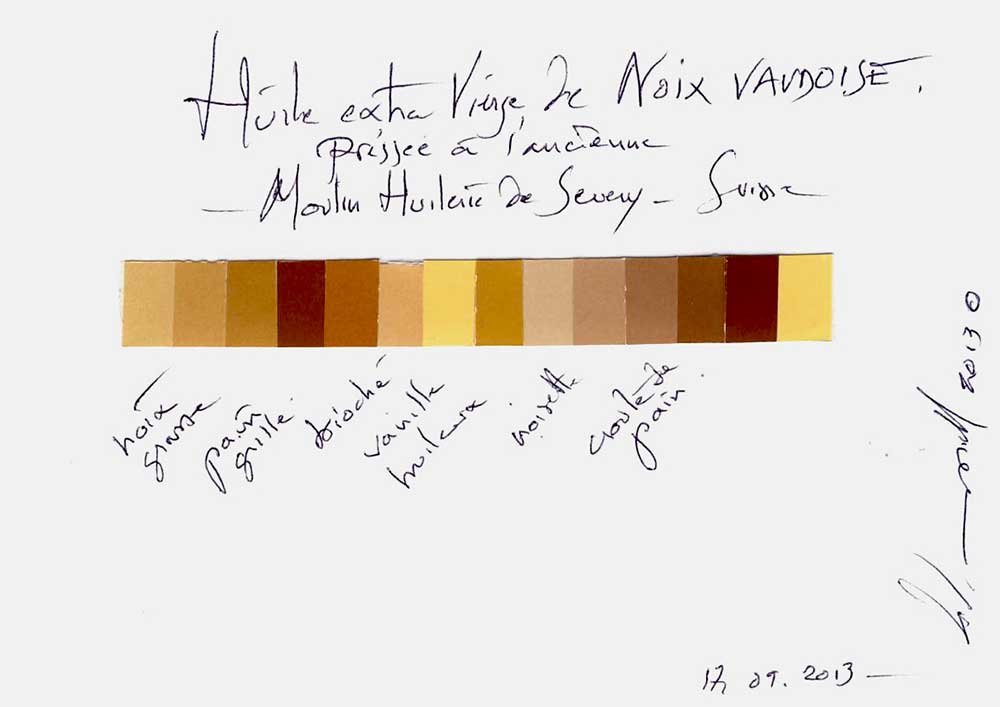 Huile extra Vierge de NOIX VAUDOISE.
Pressée à l'ancienne
— Moulin Huilerie de Severy – Suisse
noix
grasse
pain
grillé
brioché
vanille
huileux
noisette
croûte de
pain
17. 09. 2013 —